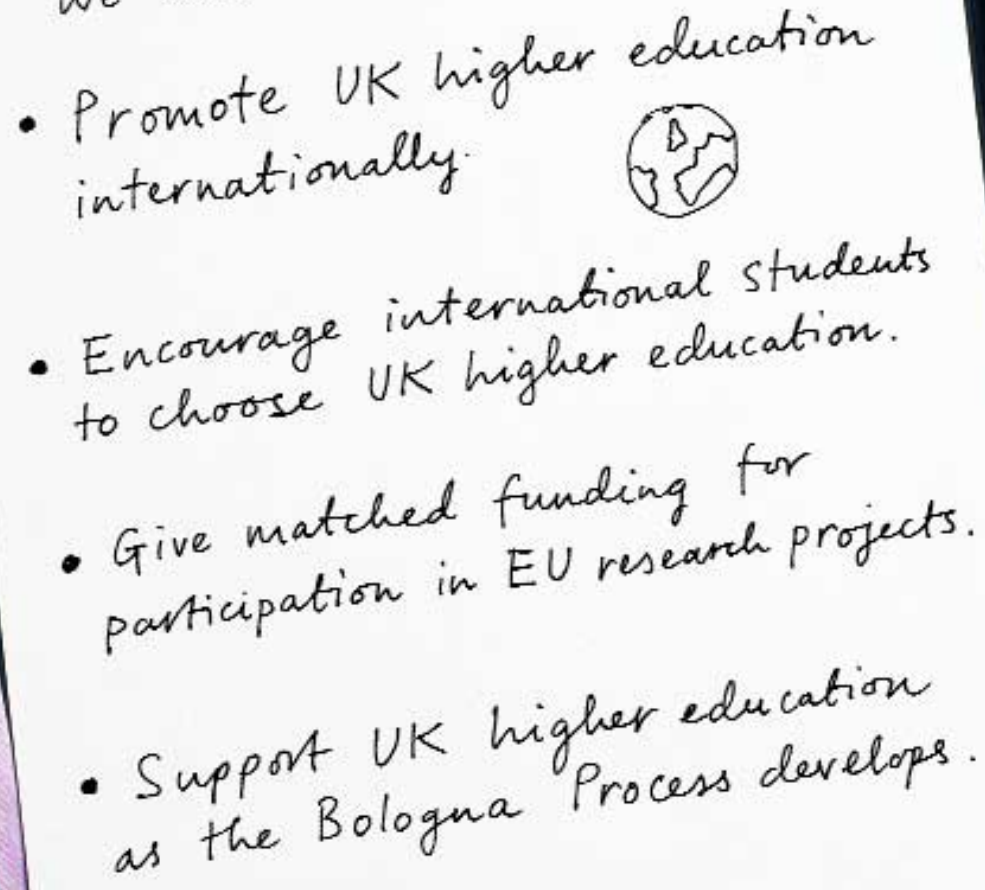 • Promote UK higher education
internationally.
• Encourage international students
to choose UK higher education.
• Give matched funding for
participation in EU research projects.
• Support UK higher education
as the Bologna Process develops.